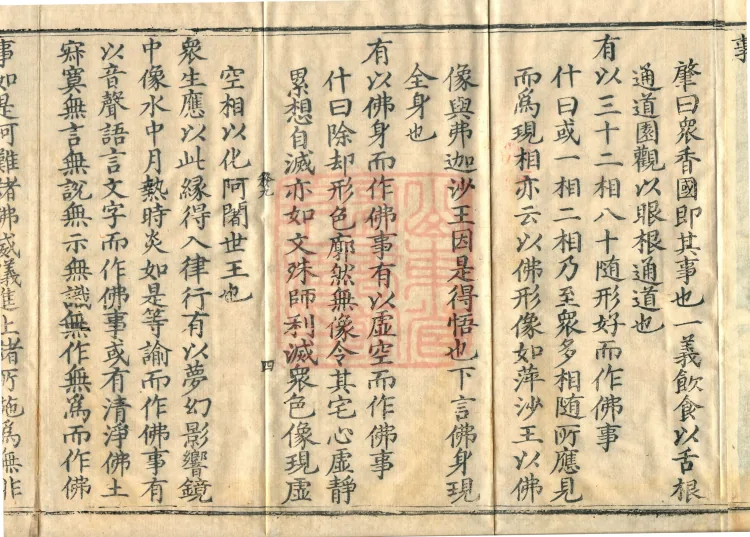 事
肇曰衆香國即其事也一義飲食以舌根
通道園觀以眼根通道也
有以三十二相八十随形好而作佛事
什曰或一相二相乃至衆多相随所應見
而爲現相亦云以佛形像如蓱沙王以佛
像與弗迦沙王因是得悟也下言佛身現
全身也
有以佛身而作佛事有以虚空而作佛事
什曰除却形色廓然無像令其宅心虚静
累想自滅亦如文殊師利滅衆色像現虚
空相以化阿闍世王也
卷九
四
衆生應以此縁得入律行有以夢幻影響鏡
中像水中月熱時炎如是等諭而作佛事有
以音聲語言文字而作佛事或有清淨佛土
寂寞無言無説無示無識無作無爲而作佛
事如是阿難諸佛威儀進止諸所施爲無非